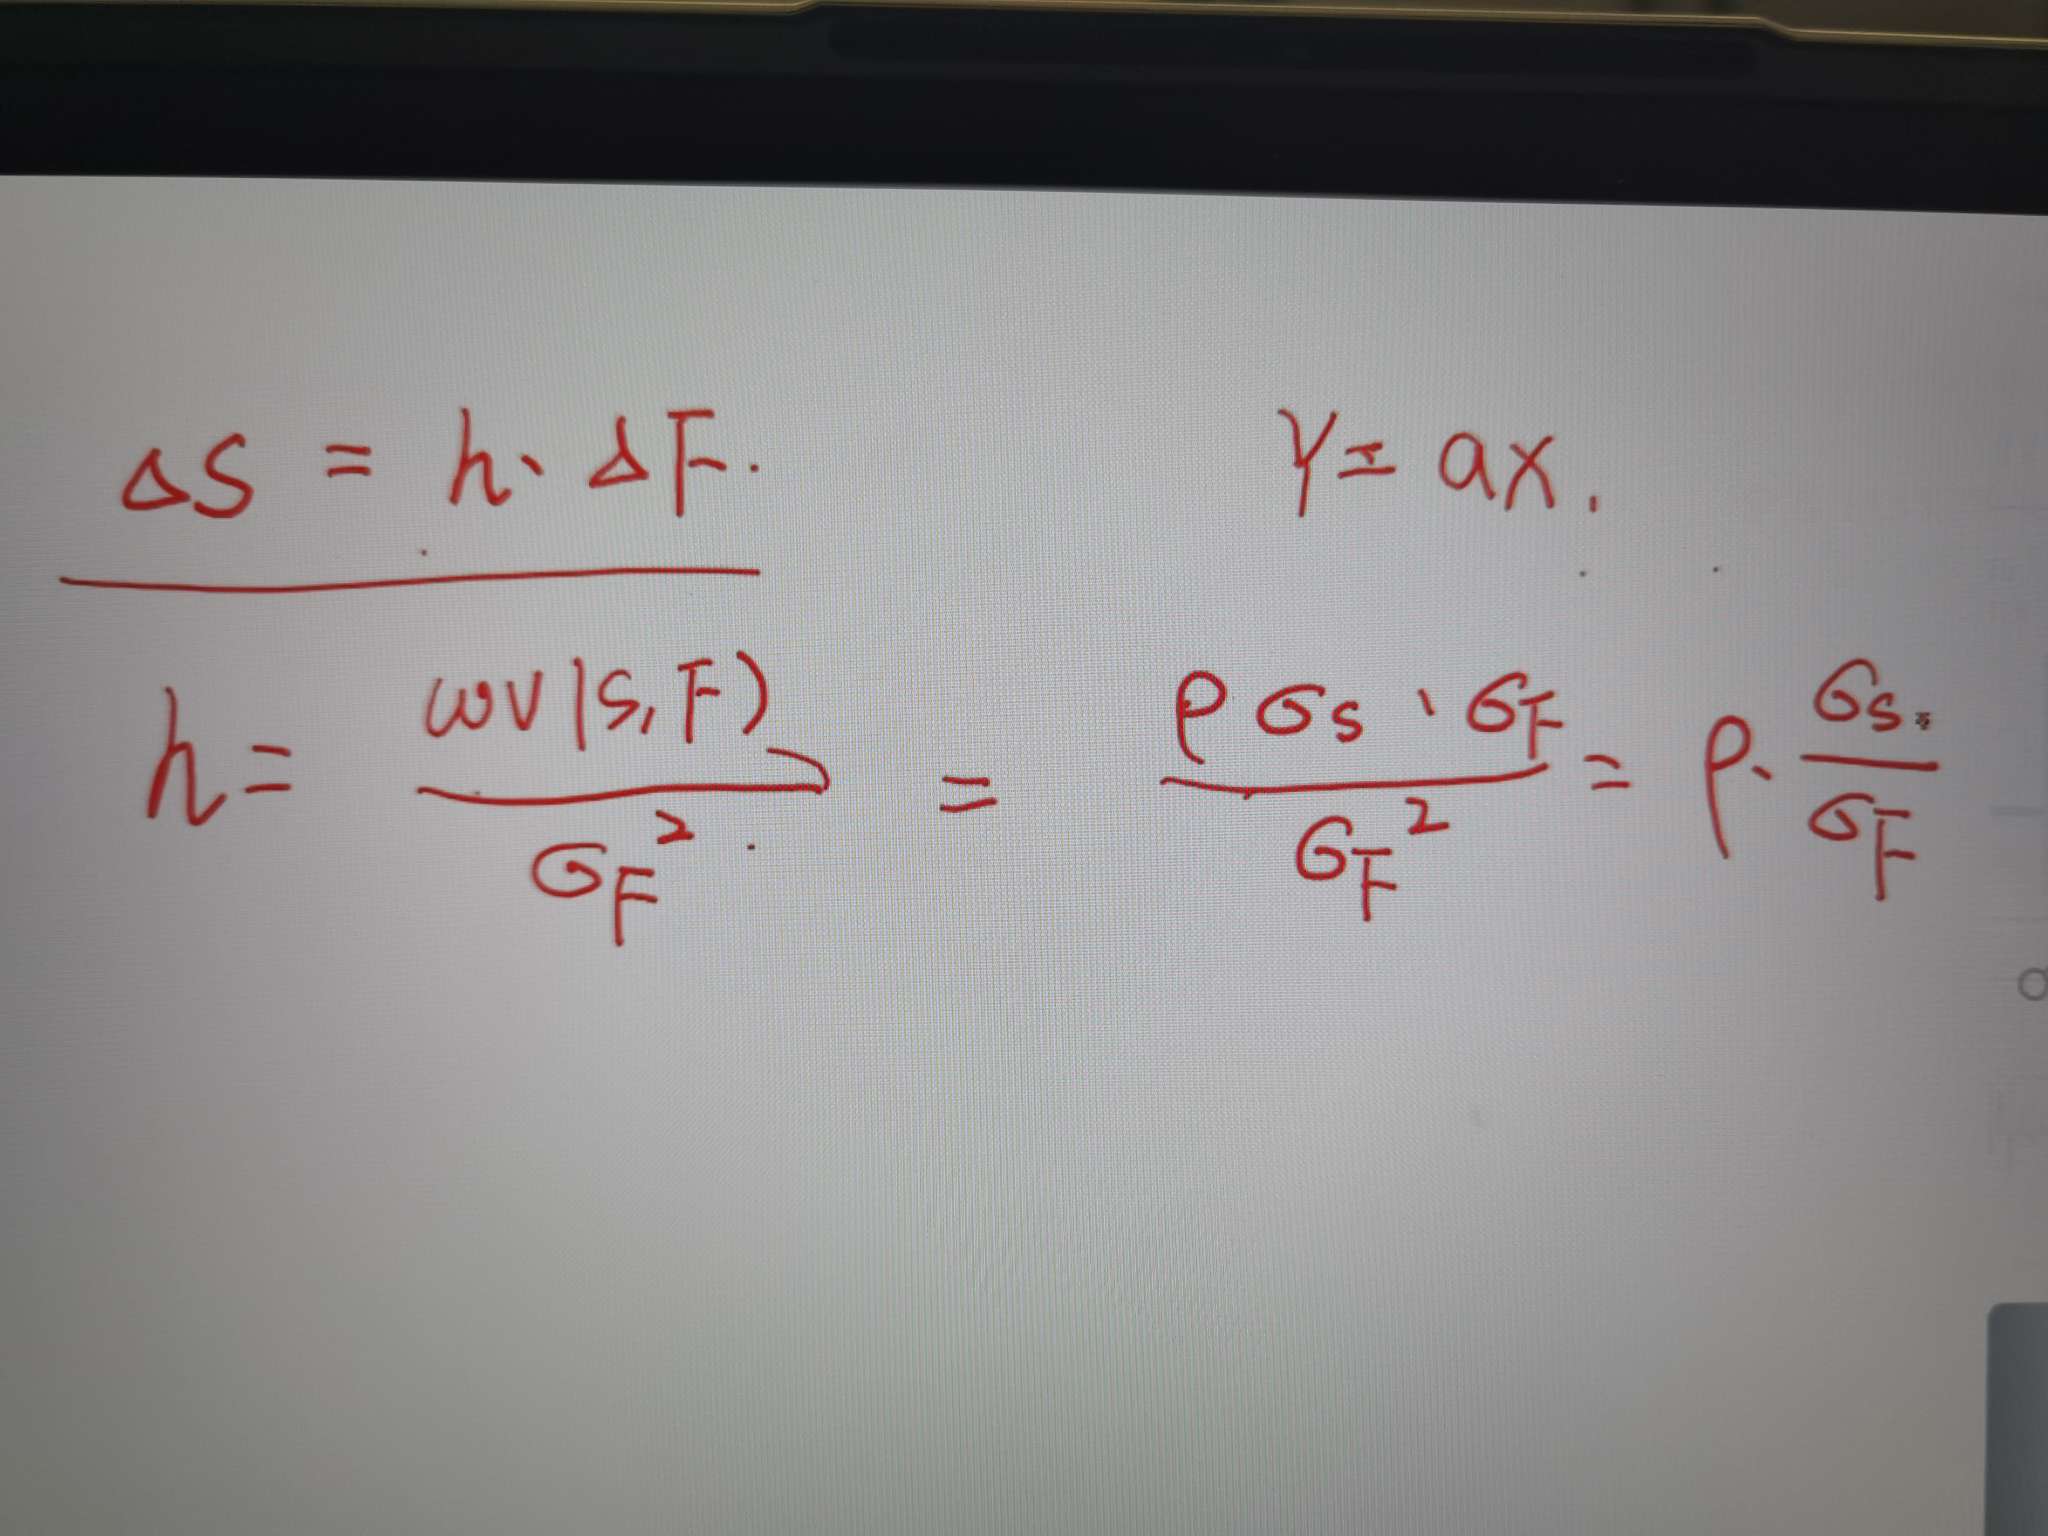 ΔS = h · ΔF. Y = ax.
h = cov(S,F) / σF² = ρσs · σF / σF² = ρ · σs / σF